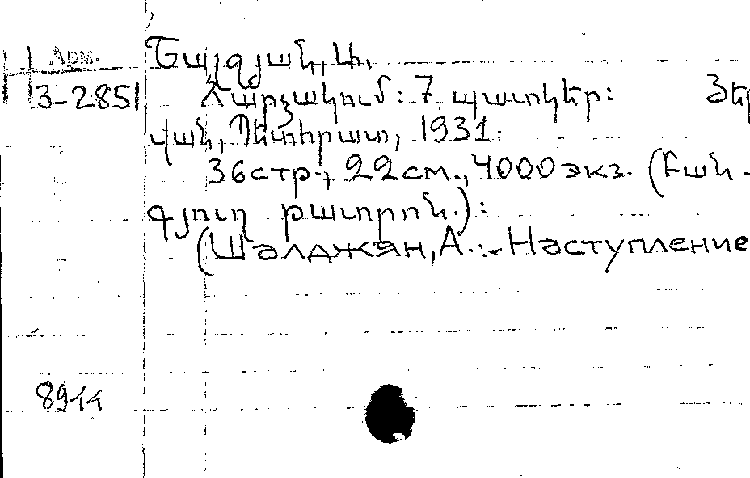 Арм.
3-2851
Շալջյան, Ա.
Հարձակում: 7 պատկեր: Յեր
վան, Պետհրատ, 1931.
36 стр., 22 см., 4000 экз. (Բան.
գյուղ թատրոն.):
(Шалджян, А. :- Наступление